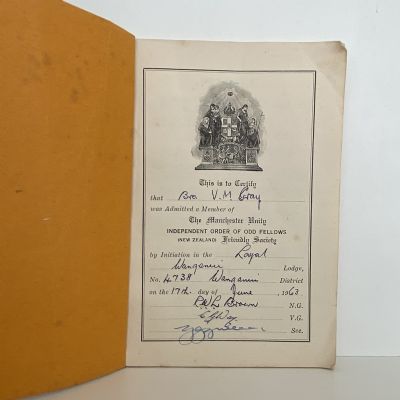 This is to Certify
that Bro V. M. Gray
was Admitted a Member of
The Manchester Unity
INDEPENDENT ORDER OF ODD FELLOWS
(NEW ZEALAND) Friendly Society
by Initiation in the Loyal
Wanganui Lodge,
No. 4738 Wanganui District
on the 17th day of June, 1963
Brown N.G.
V.G.
Sec.